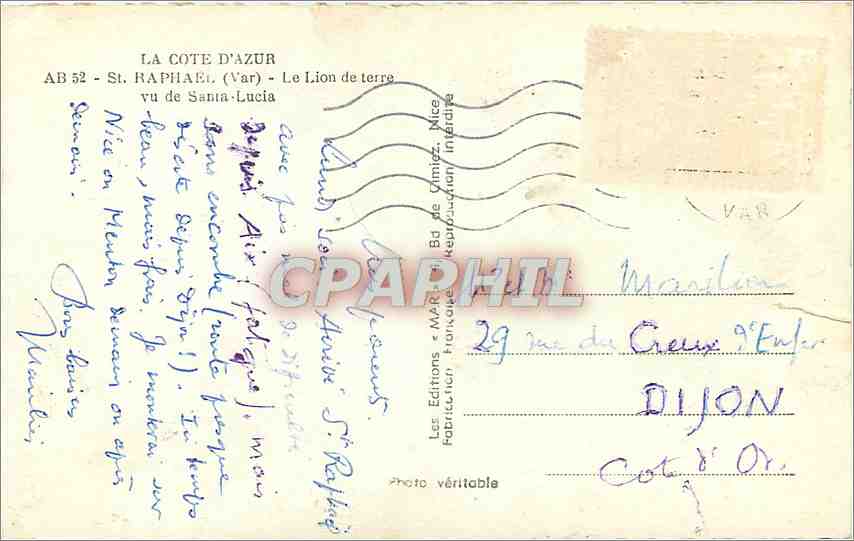 LA COTE D'AZUR
AB 52 - St. RAPHAEL (Var) - Le Lion de terre
vu de Santa-Lucia
Chers parents.
Lundi soir Arrivé St Raphaël
avec pas mal de difficultés
depuis Aix (fatigue). mais
sans encombre (route presque
déserte depuis Dijon !). Le temps
beau, mais frais. Je monterai sur
Nice ou Menton demain ou après
demain.
Bons baisers
Les Editions « MAR » Bd de Cimiez, Nice
Fabrication Française Reproduction Interdite
Photo véritable
CPAPHIL
VAR
29 rue du Creux d'Enfer
DIJON
Cote d'Or.